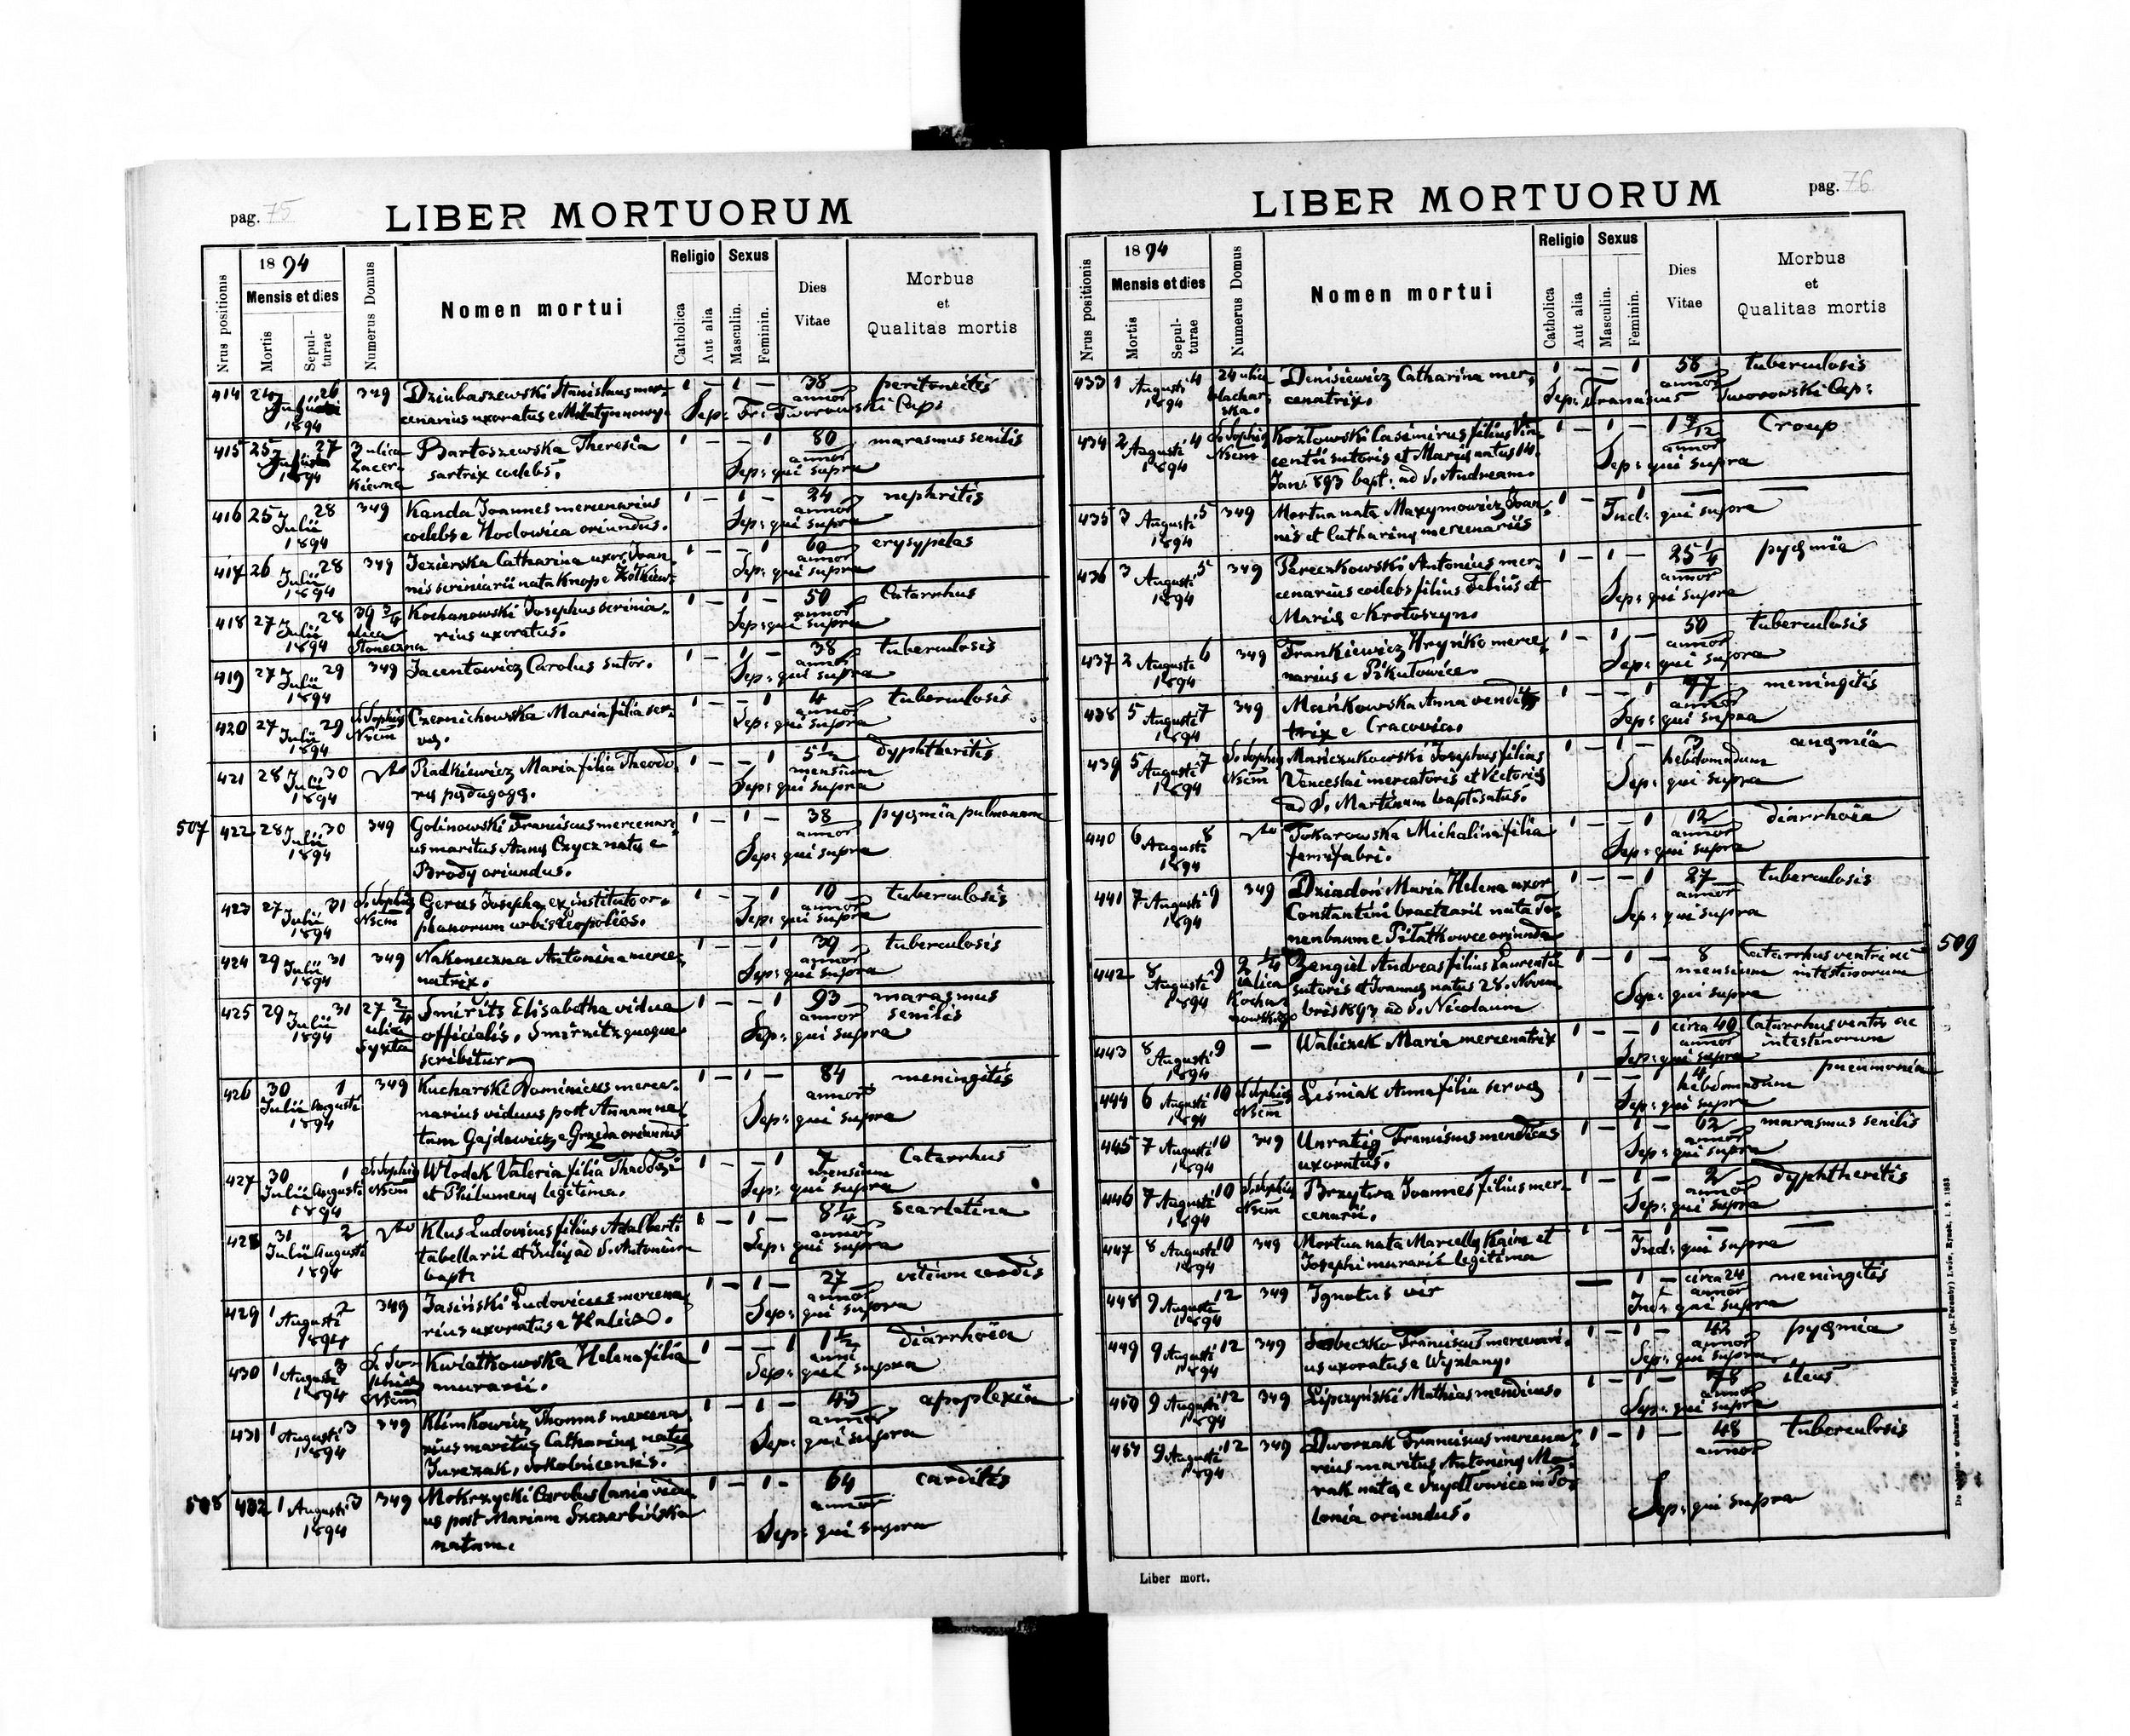 pag. 75
LIBER MORTUORUM
Nrus positionis
1894
Mensis et dies
Mortis
Sepul-
turae
Numerus Domus
Nomen mortui
Religio
Catholica
Aut alia
Sexus
Masculin.
Feminin.
Dies
Vitae
Morbus
et
Qualitas mortis
414 24 Julii 26 1894 349 Dziubaszewski Stanislaus mer- 1 — 1 — 38 annor peritonitis
cenarius uxoratus e Milatyn nowy. Sep: Fr: Tworowski Cap:
415 25 27 1894 3 ulica Bartoszewska Theresia 1 — — 1 80 annor marasmus senilis
sartrix coelebs. Sep: qui supra
416 25 Julii 28 1894 349 Kanda Joannes mercenarius 1 — 1 — 24 annor nephritis
coelebs e Hodowica oriundus. Sep: qui supra
417 26 Julii 28 1894 349 Jezierska Catharina uxor Joan- 1 — — 1 60 annor erysypelas
nis scriniarii nata Knop e Żółkiew. Sep: qui supra
418 27 Julii 28 1894 39 3/4 ulica Słoneczna Kochanowski Josephus scrinia- 1 — 1 — 50 annor Catarrhus
rius uxoratus. Sep: qui supra
419 27 Julii 29 1894 349 Jacentowicz Carolus sutor. 1 — 1 — 38 annor tuberculosis
Sep: qui supra
420 27 Julii 29 1894 S. Sophia Nsem Czernichowska Maria filia ser- 1 — — 1 4 annor tuberculosis
vae. Sep: qui supra
421 28 Julii 30 1894 Radkiewicz Maria filia Theodo- 1 — — 1 5 1/2 mensium dyphtheritis
ri paedagogi. Sep: qui supra
507 422 28 Julii 30 1894 349 Golinowski Franciscus mercenari- 1 — 1 — 38 annor pyaemia pulmonum
us maritus Annae Czycz natae e Sep: qui supra
Brody oriundus.
423 27 Julii 31 1894 S. Sophia Nsem Gerus Josepha, ex instituto or- 1 — — 1 10 annor tuberculosis
phanorum urbis Leopolios. Sep: qui supra
424 29 Julii 31 1894 349 Nakoneczna Antonina merce- 1 — — 1 39 annor tuberculosis
natrix. Sep: qui supra
425 29 Julii 31 1894 27 2/4 ulica Syxta Smiritz Elisabetha vidua 1 — — 1 93 annor marasmus senilis
officialis. Smirnitz quoque Sep: qui supra
scribitur.
426 30 Julii 1 Augusti 1894 349 Kucharski Dominicus merce- 1 — 1 — 84 annor meningitis
narius viduus post Annam na- Sep: qui supra
tam Gajdowicz e Grzęda oriundus
427 30 Julii 1 Augusti 1894 S. Sophia Nsem Włodek Valeria filia Theodosii 1 — — 1 7 mensium Catarrhus
et Philumenae legitima. Sep: qui supra
428 31 Julii 2 Augusti 1894 Klus Ludovicus filius Adalberti 1 — 1 — 8 1/4 annor Scarlatina
tabellarii et Juliae ad S. Antonium Sep: qui supra
bapt:
429 1 Augusti 2 1894 349 Jasiński Ludovicus mercena- 1 — 1 — 27 annor vitium cordis
rius uxoratus e Halicz. Sep: qui supra
430 1 Augusti 3 1894 S. Sophia Nsem Kwiatkowska Helena filia 1 — — 1 1 1/2 anni diarrhoia
murarii. Sep: qui supra
431 1 Augusti 3 1894 349 Klimkowicz Thomas mercena- 1 — 1 — 43 annor apoplexia
rius maritus Catharinae natae Sep: qui supra
Jurczak, Sokolnicensis.
508 432 1 Augusti 3 1894 349 Mokrzycki Carolus lanio vidu- 1 — 1 — 64 annor carditis
us post Mariam Szczerbińska Sep: qui supra
natam.
pag. 76
LIBER MORTUORUM
Nrus positionis
1894
Mensis et dies
Mortis
Sepul-
turae
Numerus Domus
Nomen mortui
Religio
Catholica
Aut alia
Sexus
Masculin.
Feminin.
Dies
Vitae
Morbus
et
Qualitas mortis
433 1 Augusti 4 1894 24 ulica Denisiewicz Catharina mer- 1 — — 1 58 annor tuberculosis
cenatrix. Sep: Franciscus Tworowski Cap:
434 2 Augusti 4 1894 S. Sophia Nsem Kozłowski Casimirus filius Vin- 1 — 1 — 1 7/12 annor Croup
centii sutoris et Mariae natus 14. Sep: qui supra
Jan: 893 bapt: ad S. Andream.
435 3 Augusti 5 1894 349 Mortua nata Maxymowicz Joan- 1 — 1 — —
nis et Catharinae mercenariis Ind: qui supra
436 3 Augusti 5 1894 349 Pereczkowski Antonius mer- 1 — 1 — 25 1/4 annor pyaemia
cenarius coelebs filius et Sep: qui supra
Mariae e Krotoszyn.
437 2 Augusti 6 1894 349 Frankiewicz Hryńko merce- 1 — 1 — 50 annor tuberculosis
narius e Pikułowice. Sep: qui supra
438 5 Augusti 7 1894 349 Mańkowska Anna vendi- 1 — — 1 77 annor meningitis
trix e Cracovia. Sep: qui supra
439 5 Augusti 7 1894 S. Sophia Nsem Mańczukowski Josephus filius 1 — 1 — 3 hebdomadum anaemia
Venceslai mercatoris et Victoriae Sep: qui supra
ad S. Martinum baptisatus.
440 6 Augusti 8 1894 Tokarowska Michalina filia 1 — — 1 12 annor diarrhoia
ferrifabri. Sep: qui supra
441 7 Augusti 9 1894 349 Dziadoń Maria Helena uxor 1 — — 1 27 annor tuberculosis
Constantini bractearii nata Te- Sep: qui supra
nenbaum e Piłatkowce oriunda
442 8 Augusti 9 1894 2 1/4 ulica Kochanowskiego Zengiel Andreas filius Laurentii 1 — 1 — 8 mensium Catarrhus ventri ac intestinorum 509
sutoris et Joannae natus 28. Novem- Sep: qui supra
bris 1893 ad S. Nicolaum
443 8 Augusti 9 1894 — Waliczek Maria mercenatrix 1 — — 1 circa 40 annor Catarrhus ventri ac
Sep: qui supra intestinorum
444 6 Augusti 10 1894 S. Sophia Nsem Leśniak Anna filia servae 1 — — 1 4 hebdomadum pneumonia
Sep: qui supra
445 7 Augusti 10 1894 349 Unratig Franciscus mendicus 1 — 1 — 62 annor marasmus senilis
uxoratus. Sep: qui supra
446 7 Augusti 10 1894 S. Sophia Nsem Brzytwa Joannes filius mer- 1 — 1 — 2 annor dyphtheritis
cenarii. Sep: qui supra
447 8 Augusti 10 1894 349 Mortua nata Marcellae Kaim et 1 — 1 — —
Josephi murarii legitima Ind: qui supra
448 9 Augusti 12 1894 349 Ignotus vir — 1 — circa 24 annor meningitis
Ind: qui supra
449 9 Augusti 12 1894 349 Sobeczko Franciscus mercenari- 1 — 1 — 42 annor pyaemia
us uxoratus e Wyżlany. Sep: qui supra
450 9 Augusti 12 1894 349 Lipczyński Mathias mendicus. 1 — 1 — 78 annor ileus
Sep: qui supra
451 9 Augusti 12 1894 349 Dworzak Franciscus mercena- 1 — 1 — 48 annor tuberculosis
rius maritus Antoninae Mo-
rak natae e Szydłowice in Po-
lonia oriundus. Sep: qui supra
Liber mort.